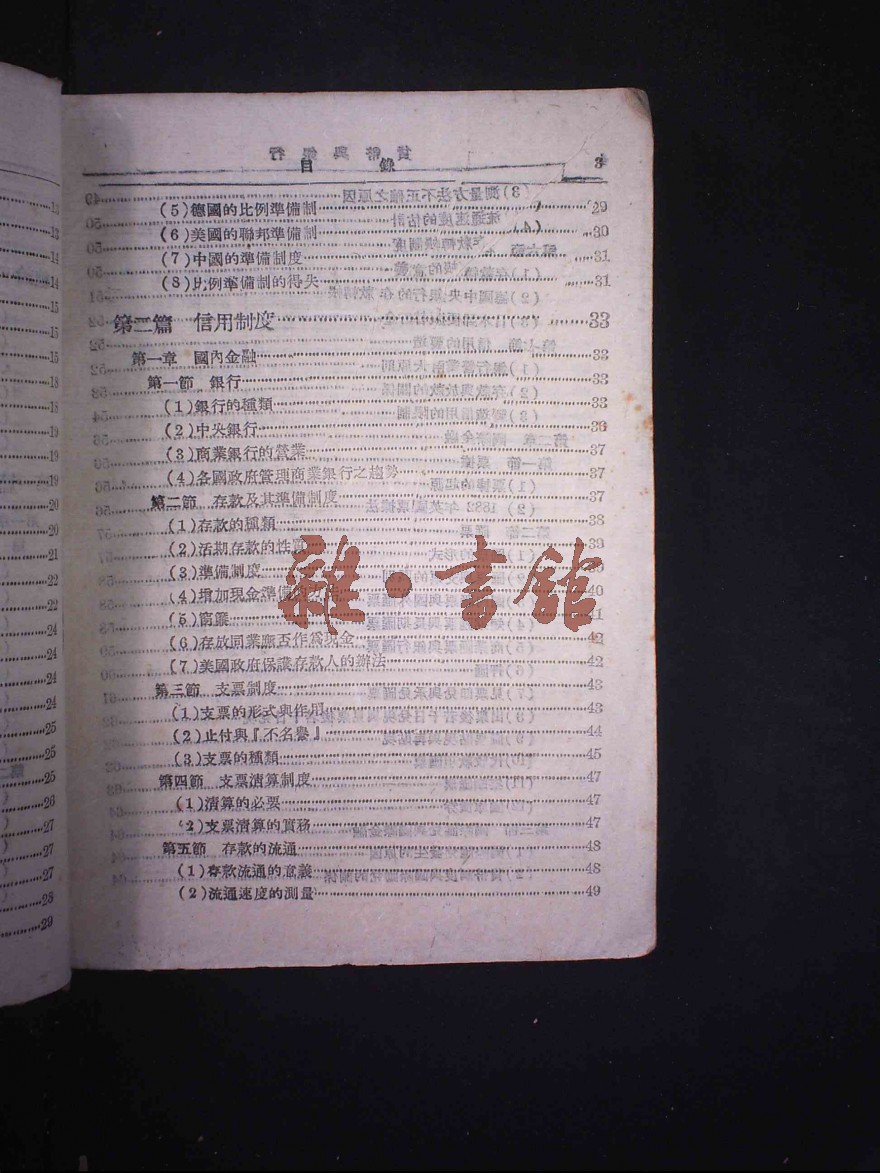 目錄 3
(5)德國的比例準備制 29
(6)美國的聯邦準備制 30
(7)中國的準備制度 31
(8)比例準備制的得失 31
第二篇 信用制度 33
第一章 國內金融 33
第一節 銀行 33
(1)銀行的種類 33
(2)中央銀行 36
(3)商業銀行的營業 37
(4)各國政府管理商業銀行之趨勢 37
第二節 存款及其準備制度 37
(1)存款的種類 38
(2)活期存款的性質 39
(3)準備制度 39
(4)增加現金準備的方法 40
(5)窗飾 41
(6)存放同業應否作為現金 42
(7)美國政府保護存款人的辦法 42
第三節 支票制度 43
(1)支票的形式與作用 43
(2)止付與『不名譽』 44
(3)支票的種類 45
第四節 支票清算制度 47
(1)清算的必要 47
(2)支票清算的實務 47
第五節 存款的流通 48
(1)存款流通的意義 48
(2)流通速度的測量 49
雜·書館
12
13
14
14
15
15
18
18
19
20
20
21
22
22
24
24
25
25
25
26
27
27
28
29